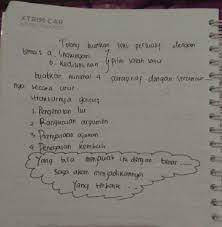 XTREME CAR
Tolong buatkan teks persuasif dengan
tema : a. lingkungan
b. kedisiplinan } pilih salah satu
buatkan minimal 4 paragraf dengan struktur
nya secara urut
strukturnya
1. Pengenalan isu
2. Rangkaian argumen
3. Pernyataan ajakan
4. Penegasan kembali
Yang bisa menjawab ini dengan benar...
saya akan menjadikannya
Yang terbaik...